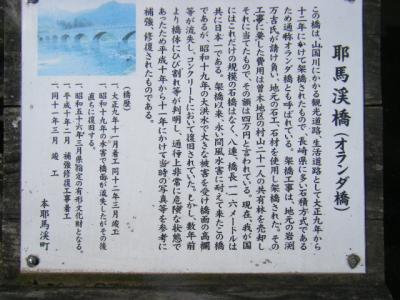 耶馬溪橋（オランダ橋）
この橋は、山国川にかかる観光道路、生活道路として大正九年から
十二年にかけて架橋されたもので、長崎県に多い石積方式である
ため通称オランダ橋とも呼ばれている。架橋工事は、地元の岩渕
万吉氏が請け負い、地元の石工、石材を使用し架橋された。その
工事に要した費用は曽木地区の村山二十一人の共有林を売却し
それに当てたもので、その額は四万円と言われている。現在、我が国
にはこれだけの規模の石橋はなく、八連、橋長一一六メートルは
共に日本一である。架橋以来、永い間風水害に耐えて来たこの橋
であるが、昭和十九年の大洪水で大きな被害を受け橋面の高欄
等が流失し、コンクリートにおいて復旧されていた。しかし、数年前
より橋体にひび割れ等が判明し、通行上非常に危険な状態で
あったため平成十年から十一年にかけて当時の写真等を参考に
補強、修復されたものである。
（橋歴）
一、大正九年十一月着工 同十二年三月竣工
一、昭和十九年の水害で橋面が流失したがその後
直ちに復旧する。
一、昭和五十六年三月県指定の有形文化財となる。
一、平成十年二月 補強修復工事着工
一、同十一年三月 竣工
本耶馬渓町